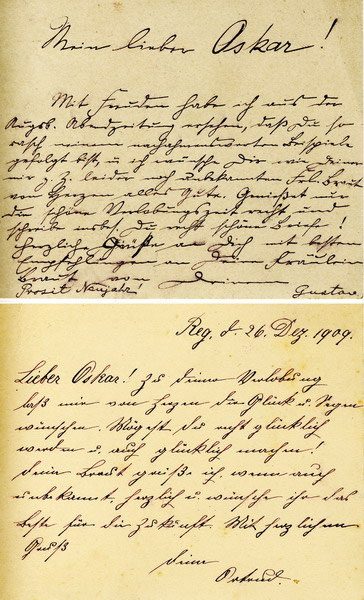 Mein lieber Oskar!
Mit Freuden habe ich aus der
Augsb. Abendzeitung ersehen, daß Du so
rasch meinem nachahmenswerten Beispiele
gefolgt bist, u. ich wünsche Dir wie Deiner
mir z. Z. leider noch unbekannten Frl. Braut
von Herzen alles Gute. Genießet nur
die schöne Verlobungszeit recht und
schreibe insbes. Du recht schöne Briefe!
Herzliche Grüße an Dich mit besten
Empfehlungen an Dein Fräulein
Braut von Deinem
Prosit Neujahr! Gustav.
Reg. d. 26. Dez. 1909.
Lieber Oskar! Zu deiner Verlobung
laß mir von Herzen dir Glück u. Segen
wünschen. Mögest du recht glücklich
werden u. auch glücklich machen!
Deine Braut grüße ich, wenn auch
unbekannt, herzlich u. wünsche ihr das
beste für die Zukunft. Mit herzlichem
Gruß
dein